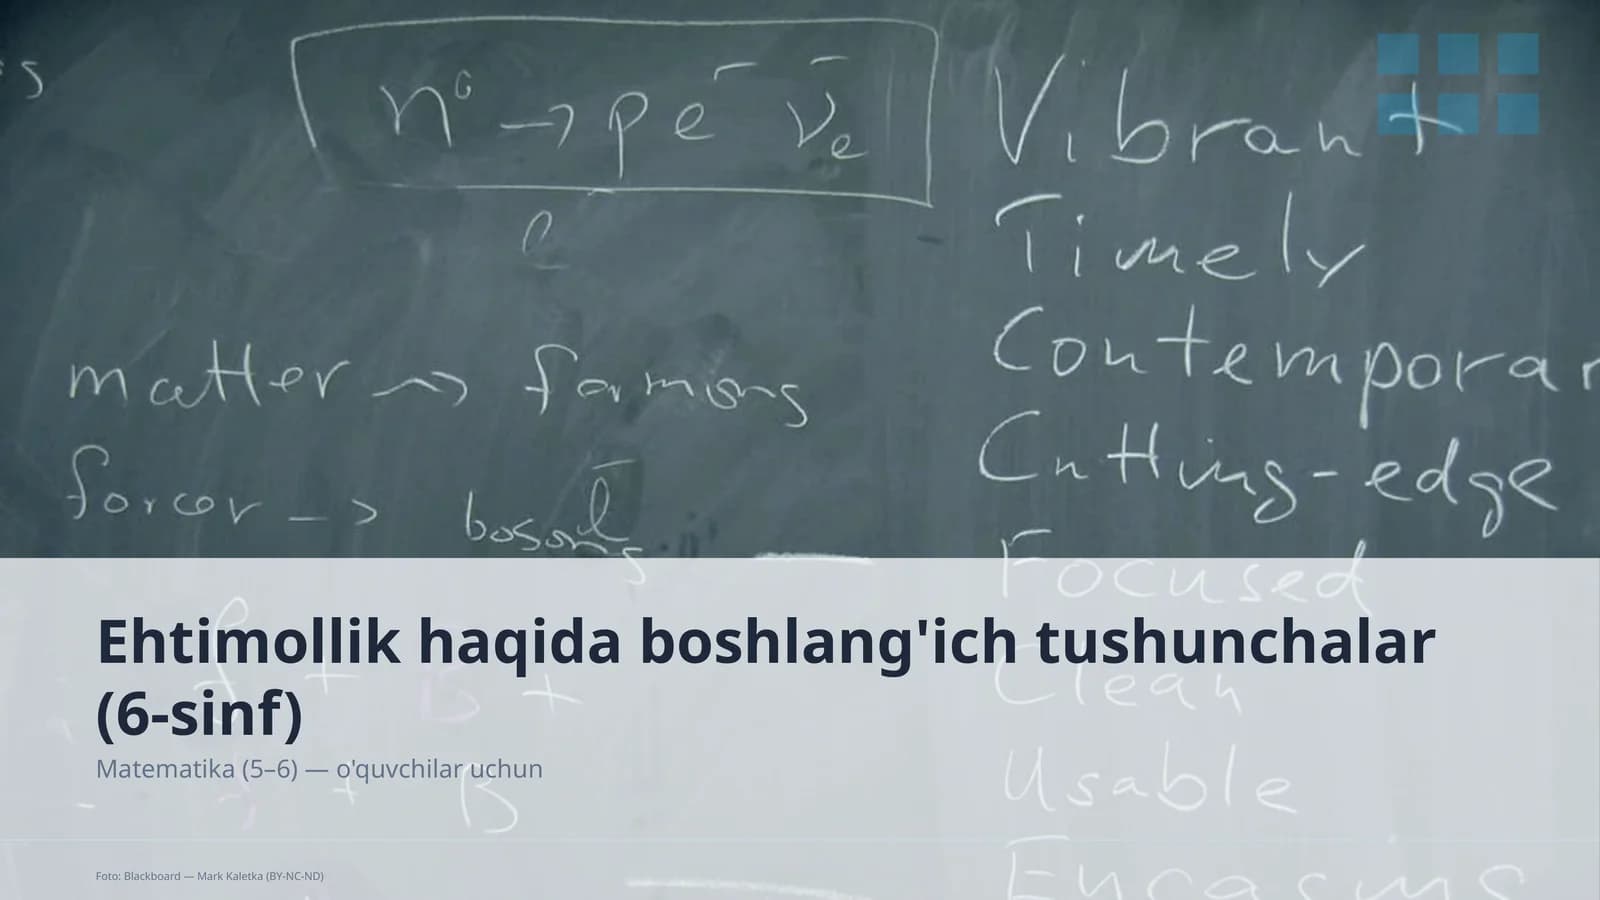 s
n⁰ → p e⁻ ν̄e
Vibrant
e
Timely
Contemporar
matter → fermions
Cutting-edge
forces → bosons
Focused
Ehtimollik haqida boshlang'ich tushunchalar
(6-sinf)
Clean
Matematika (5–6) — o'quvchilar uchun
Usable
B
Foto: Blackboard — Mark Kaletka (BY-NC-ND)